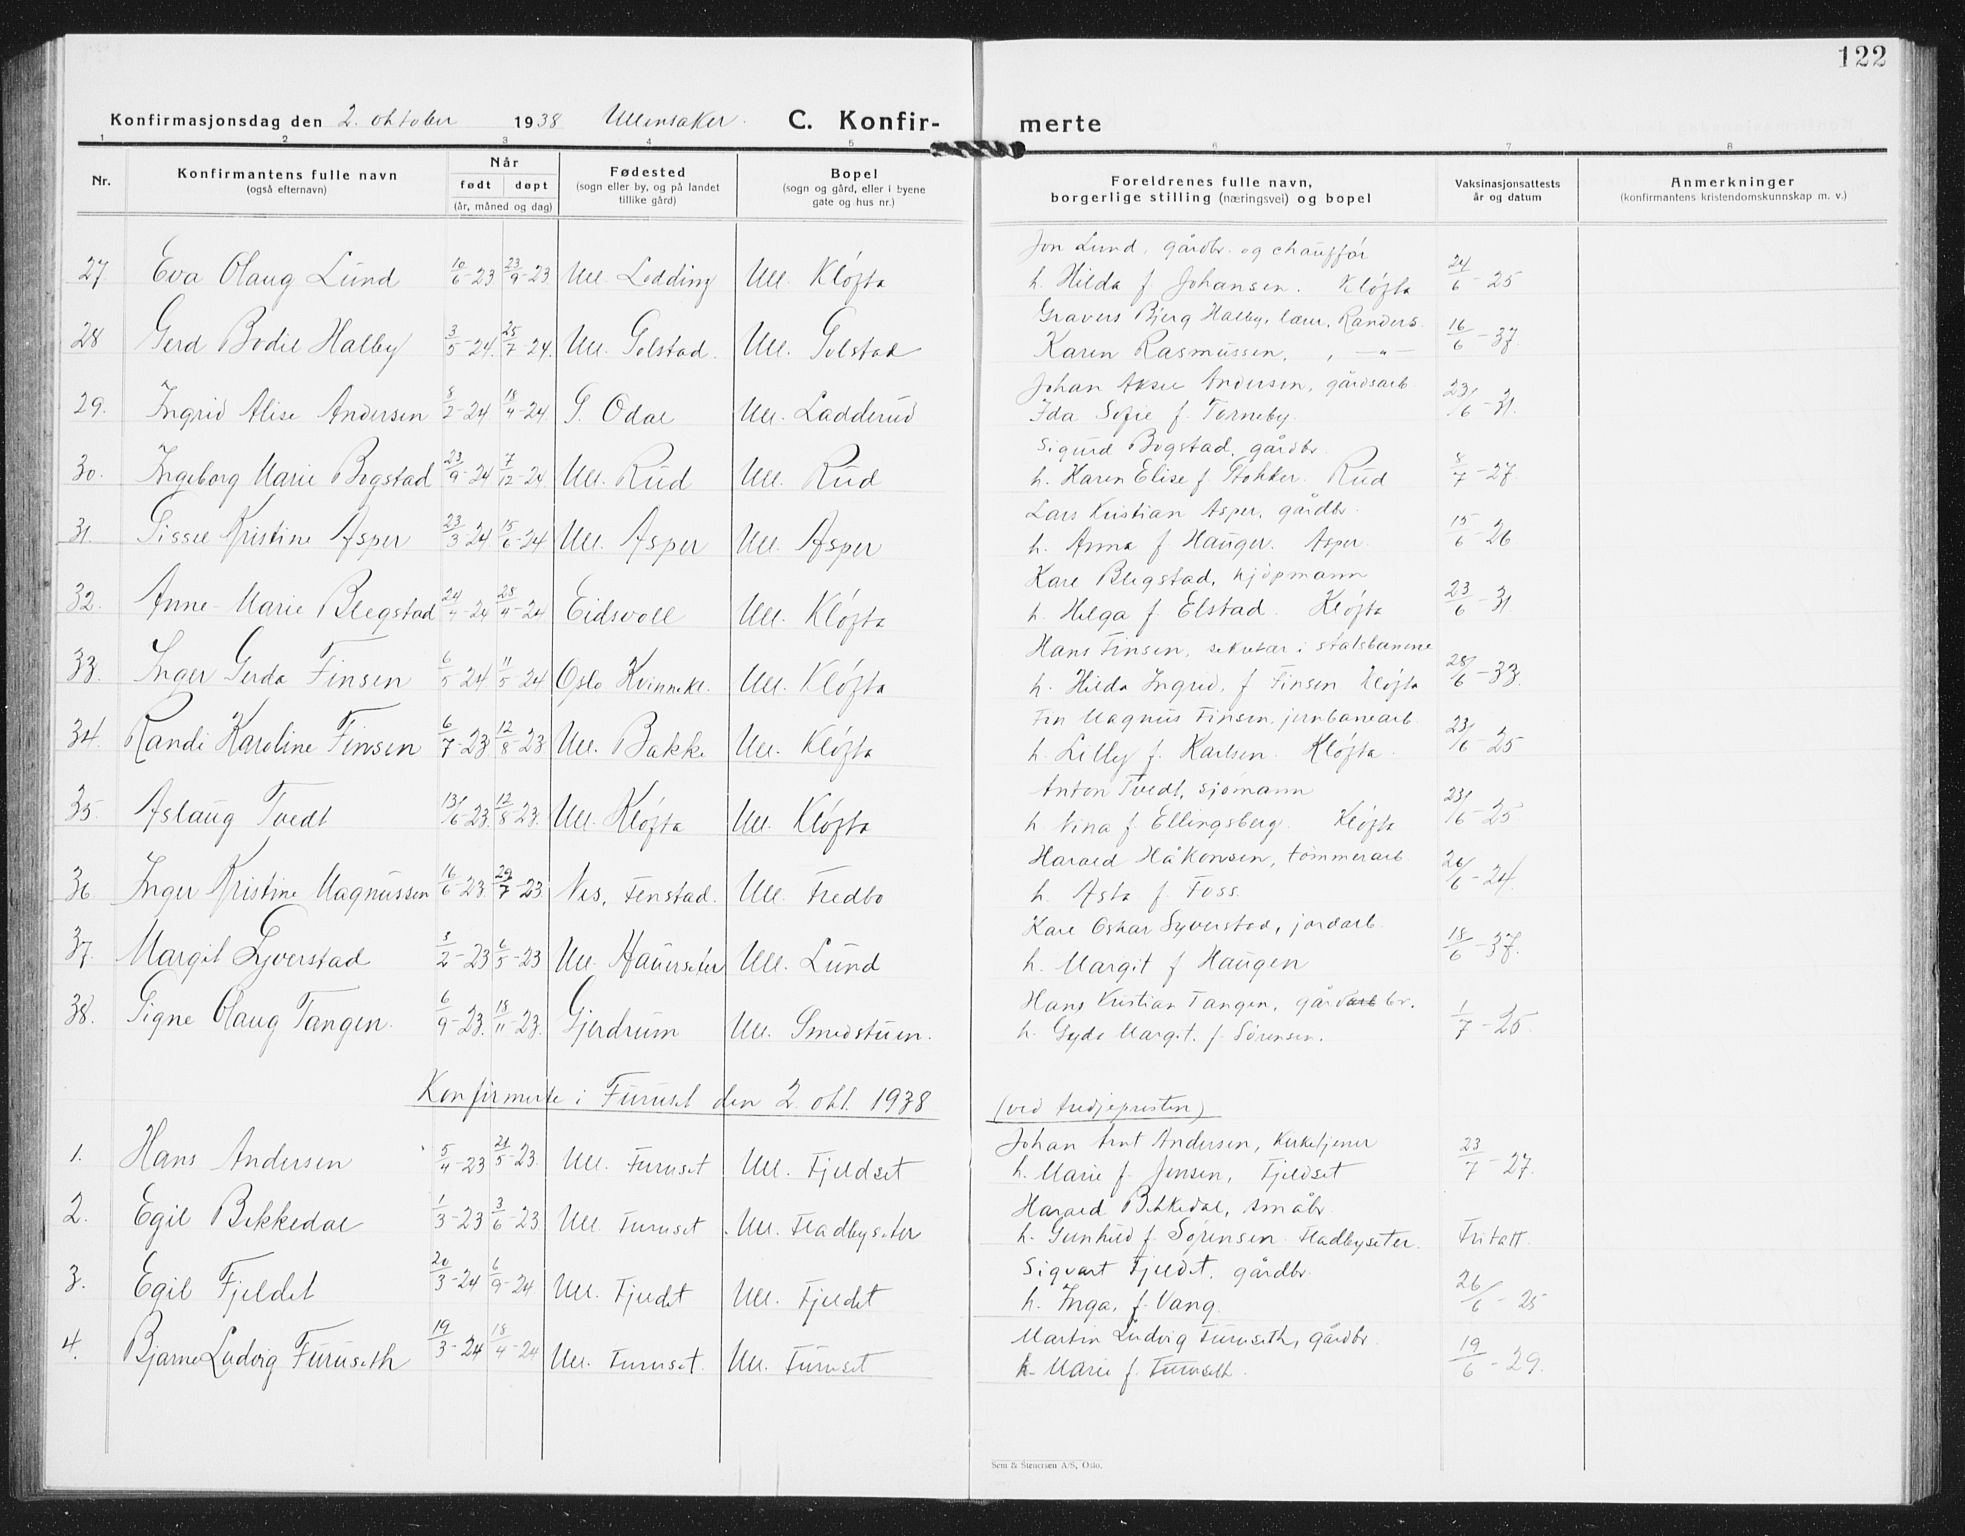 122
Konfirmasjonsdag den 2. oktober 1938 Ullensaker. C. Konfirmerte
1 2 3 4 5 6 7 8
Nr. Konfirmantens fulle navn (også efternavn) Når født døpt (år, måned og dag) Fødested (sogn eller by, og på landet tillike gård) Bopel (sogn og gård, eller i byene gate og hus nr.) Foreldrenes fulle navn, borgerlige stilling (næringsvei) og bopel Vaksinasjonsattests år og datum Anmerkninger (konfirmantens kristendomskunnskap m. v.)
Jon Lund, gårdbr. og chauffør
27. Eva Olaug Lund 10/6-23 23/9-23 Ull. Lodding Ull. Kløfta h. Hilda f. Johansen. Kløfta 24/6-25
Gravers Bjerg Halby, lærer, Randers.
28 Gerd Bodil Halby 3/5-24. 25/7-24. Ull. Golstad. Ull. Golstad Karen Rasmussen, , —"— 16/6-37.
Johan Aksel Andersen, gårdsarb.
29. Ingrid Alise Andersen 8/2-24 18/4-24. S. Odal Ull. Ladderud Ida Sofie f. Torneby. 23/6-31.
Sigurd Bogstad, gårdbr.
30. Ingeborg Marie Bogstad 23/9-24 7/12-24 Ull. Rud Ull. Rud h. Karen Elise f. Stokker. Rud 8/7-27.
Lars Kristian Asper, gårdbr.
31. Sissel Kristine Asper 23/3-24 15/6-24 Ull. Asper Ull. Asper h. Anna f. Hauger. Asper. 15/6-26
Kare Blegstad, kjøpmann
32. Anne-Marie Blegstad 24/4-24 28/4-24 Eidsvoll Ull. Kløfta h. Helga f. Elstad. Kløfta 23/6-31
Hans Finsen, sekretær i statsbanene
33. Inger Gerda Finsen 6/5-24 11/5-24 Oslo Kvinnekl. Ull. Kløfta h. Hilda Ingrid, f Finsen Kløfta 28/6-33.
Fin Magnus Finsen, jernbanearb.
34. Randi Karoline Finsen 6/7-23 12/8-23 Ull. Bakke Ull. Kløfta h. Lilly f. Karlsen. Kløfta. 23/6-25
Anton Tvedt, sjømann
35. Aslaug Tvedt 13/6-23. 12/8-23. Ull. Kløfta Ull. Kløfta h Nina f. Ellingsberg. Kløfta 23/6-25
Harald Håkonsen, tømmerarb.
36 Inger Kristine Magnussen 16/6-23. 29/7-23 Nes, Fenstad. Ull. Fredbo h. Asta f. Foss. 26/6-24.
Kare Oskar Syverstad, jordarb.
37. Margit Syverstad 3/2-23 6/5-23 Ull. Hauerseter Ull. Lund h. Margit f Haugen 18/6-37.
Hans Kristian Tangen, gårdarb br.
38. Signe Olaug Tangen. 6/9-23. 18/11-23. Gjerdrum Ull. Smedstuen. h. Gyda Margit. f. Sørensen. 1/7-25.
Konfirmerte i Furuset den 2. okt. 1938 (ved tredjepresten)
Johan Arnt Andersen, Kirketjener
1. Hans Andersen 5/4-23 21/5-23. Ull. Furuset Ull. Fjeldset h. Marie f. Jensen, Fjeldset 23/7-27.
Harald Bekkedal, småbr.
2. Egil Bekkedal 1/3-23 3/6-23 Ull. Furuset Ull. Fladbyseter h. Gunhild f. Sørensen. Fladbyseter. Fritatt.
Sigvart Fjeldet, gårdbr.
3. Egil Fjeldet 20/3-24 6/9-24 Ull. Fjeldet Ull. Fjeldet h. Inga, f. Vang. 26/6-25
Martin Ludvig Furuseth, gårdbr.
4. Bjarne Ludvig Furuseth 19/3-24 18/4-24 Ull. Furuset. Ull. Furuset h. Marie f. Furuseth. 19/6-29.
Sem & Stenersen A/S, Oslo.